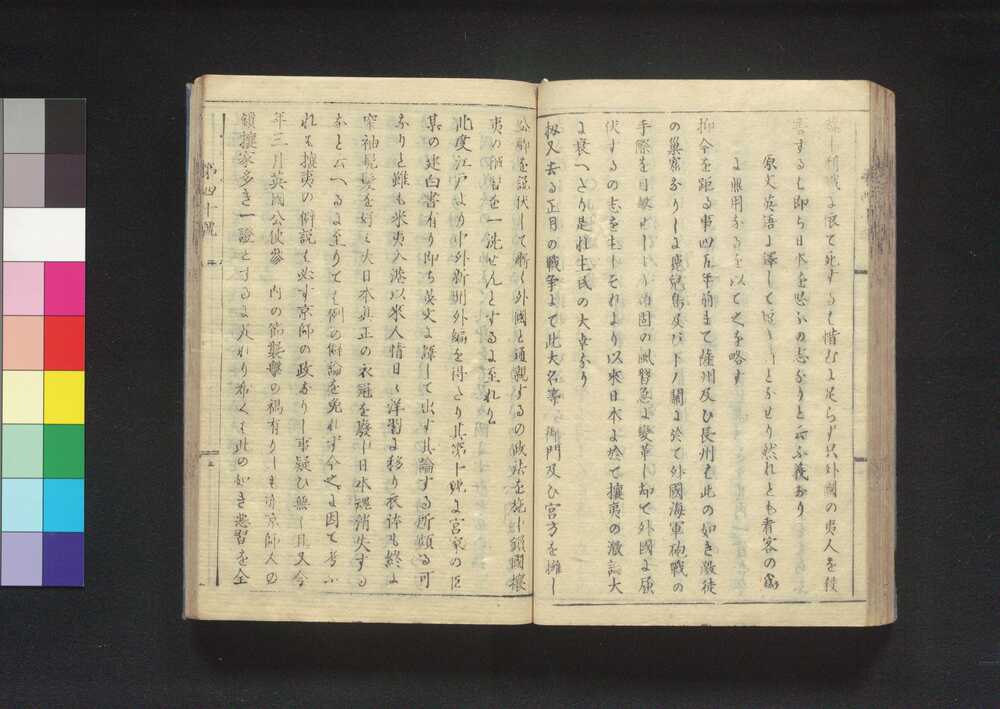 死するも惜むに足らず只外國の夷人を侵
害するも即ち日本を思ふの志なりと云ふ義なり
原文英語に譯して とかせり然れとも看客の為
に無用なるを以て之を略す
抑今を距る事四五年前まて薩州及ひ長州も此の如き激徒
の巣窟なりしに鹿兒島及バトノ關に於て外國海軍砲戰の
手際を目撃せしより 固の風習急に變革し却て外國に屈
伏するの志を生しそれより以來日本に於て攘夷の激論大
に衰へたり是れ生民の大幸なり
扨又去る正月の戰爭にて此大名等 御門及ひ宮方を擁し
公卿を説伏して漸く外國と通親するの政法を施し鎖國攘
夷の 習を一洗せんとするに至れり
此度江戸より中外新聞外編を得たり其第十 に宮家の臣
某の建白書有り即ち英文に譯して出す其論する所頗る可
なりと雖も米夷入港以來人情日々洋習に移り衣体も終に
窄袖髭髮を好み大日本真正の衣冠を廢し日本魂消失する
なと云へるに至りても例の僻論を免れず今之に因て考ふ
れは攘夷の僻説も必す京師の政なりし事疑ひ無し且又今
年三月英國公使參 内の節襲擊の禍有りしも 京師人の
鎖攘家多き一證とするに足れり希くは此の如き惡習を全
第四十號